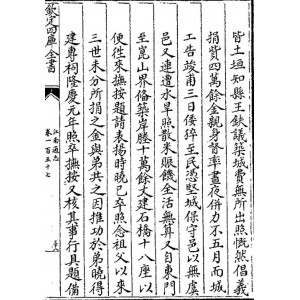 皆土垣知縣王鈇議築城費無所出照慨然倡義
捐貲四萬餘金親身督率晝夜併力不五月而城
工告竣甫三日倭猝至民憑堅城保守邑以無虞
邑又連遭水旱照散米賑饑全活無算又自東門
至崑山界脩築岸塍十萬餘丈建石橋十八座以
便徃來撫按題請表揚時曉已卒照念祖父以來
三世未分所捐之金與弟共之因推功於弟曉得
建專祠隆慶元年照卒撫按又核其事行具題備
欽定四庫全書
江南通志
卷一百五十七